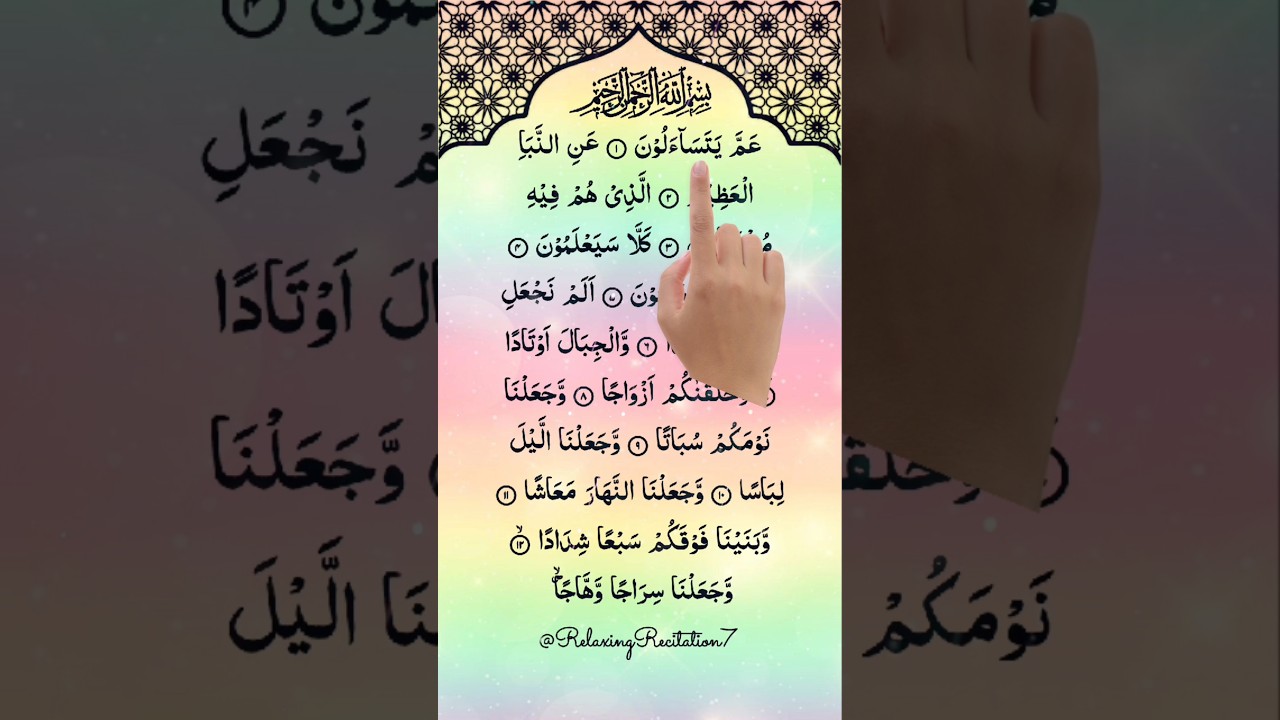 بِسْمِ اللّٰهِ الرَّحْمٰنِ الرَّحِيْمِ
عَمَّ يَتَسَآءَلُوْنَ ۝١ عَنِ النَّبَاِ
۝٢ الَّذِيْ هُمْ فِيْهِ
۝٣ كَلَّا سَيَعْلَمُوْنَ ۝٤
۝٥ اَلَمْ نَجْعَلِ
۝٦ وَّالْجِبَالَ اَوْتَادًا
وَّخَلَقْنٰكُمْ اَزْوَاجًا ۝٨ وَّجَعَلْنَا
نَوْمَكُمْ سُبَاتًا ۝٩ وَّجَعَلْنَا الَّيْلَ
لِبَاسًا ۝١٠ وَّجَعَلْنَا النَّهَارَ مَعَاشًا ۝١١
وَّبَنَيْنَا فَوْقَكُمْ سَبْعًا شِدَادًا ۝١٢ۙ
وَّجَعَلْنَا سِرَاجًا وَّهَّاجًاۙ
@RelaxingRecitation7